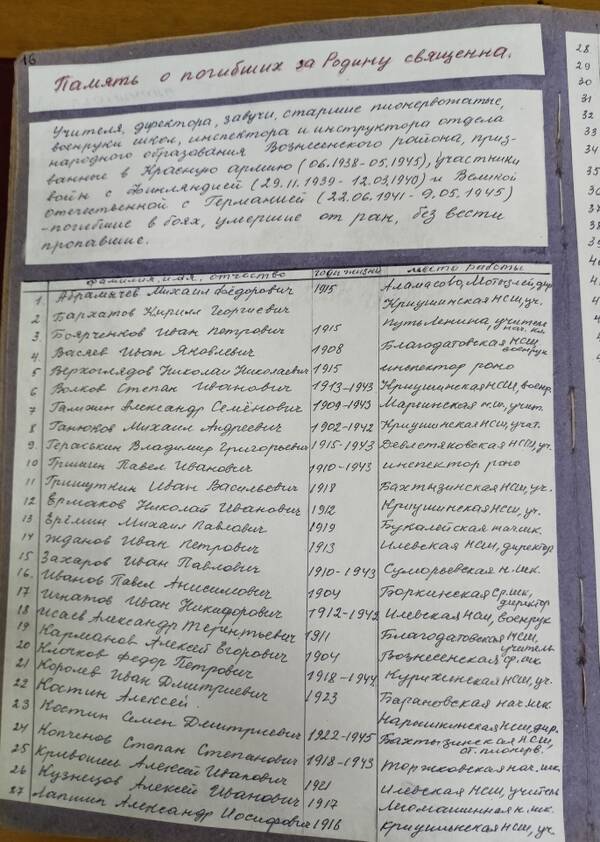 16
Память о погибших за Родину священна.
Учителя, директора, завучи, старшие пионервожатые,
военруки школ, инспектора и инструктора отдела
народного образования Вознесенского района, приз-
ванные в Красную армию (06.1938-05.1945), участники
войн с Финляндией (29.11.1939- 12.03.1940) и Великой
отечественной с Германией (22.06.1941-9.05.1945)
-погибшие в боях, умершие от ран, без вести
пропавшие.
фамилия, имя, отчество годы жизни место работы
1. Абрамычев Михаил Фёдорович 1915 Аламасово, дир.
2 Бархатов Кирилл Георгиевич Криушинская НСШ, уч.
3. Боярченков Иван Петрович 1915 Путь Ленина, учитель нач. кл.
4. Васяев Иван Яковлевич 1908 Благодатовская НСШ военрук
5 Верхоглядов Николай Николаевич 1915 инспектор роно
6 Волков Степан Иванович 1913-1943 Криушинская НСШ, военр.
7 Александр Семёнович 1909-1943 НСШ, учит.
8 Ганюков Михаил Андреевич 1902-1942 Криушинская НСШ, учит.
9. Гераськин Владимир Григорьевич 1915-1943 Девлетяковская НСШ, уч.
10 Гришин Павел Иванович 1910-1943 инспектор роно
11 Гришуткин Иван Васильевич 1918 Бахтызинская НСШ, уч.
12 Ермаков Николай Иванович 1912 Криушинская НСШ, уч.
13 Ерёмин Михаил Павлович 1919 Букалейская нач.шк.
14 Жданов Иван Петрович 1913 Илевская НСШ, директор
15 Захаров Иван Павлович 1910-1943 Суморьевская н.шк.
16. Иванов Павел Анисимович 1904 Боркинская ср.шк, директор
17 Игнатов Иван Никифорович 1912-1942 Илевская НСШ, военрук
18 Исаев Александр Терентьевич 1911 Благодатовская НСШ, учитель
19 Карманов Алексей Егорович 1904 Вознесенская ср.шк
20 Клочков Федор Петрович 1918-1944 Курихинская НСШ, уч.
21 Королев Иван Дмитриевич 1923 Барановская нач.шк.
22 Костин Алексей Нарышкинская НСШ, дир.
23 Костин Семен Дмитриевич 1922-1945 Бахтызинская НСШ, ст. пионерв.
24 Копченов Степан Степанович 1918-1943 Торжковская нач. шк.
25 Кривошеев Алексей Иванович 1921 Илевская НСШ, учитель
26 Кузнецов Алексей Иванович 1917 н.шк.
27 Лапшин Александр Иосифович 1916 Криушинская НСШ, уч.
28
29
30
31
32
33
34
35
36
37
38
39
40
4